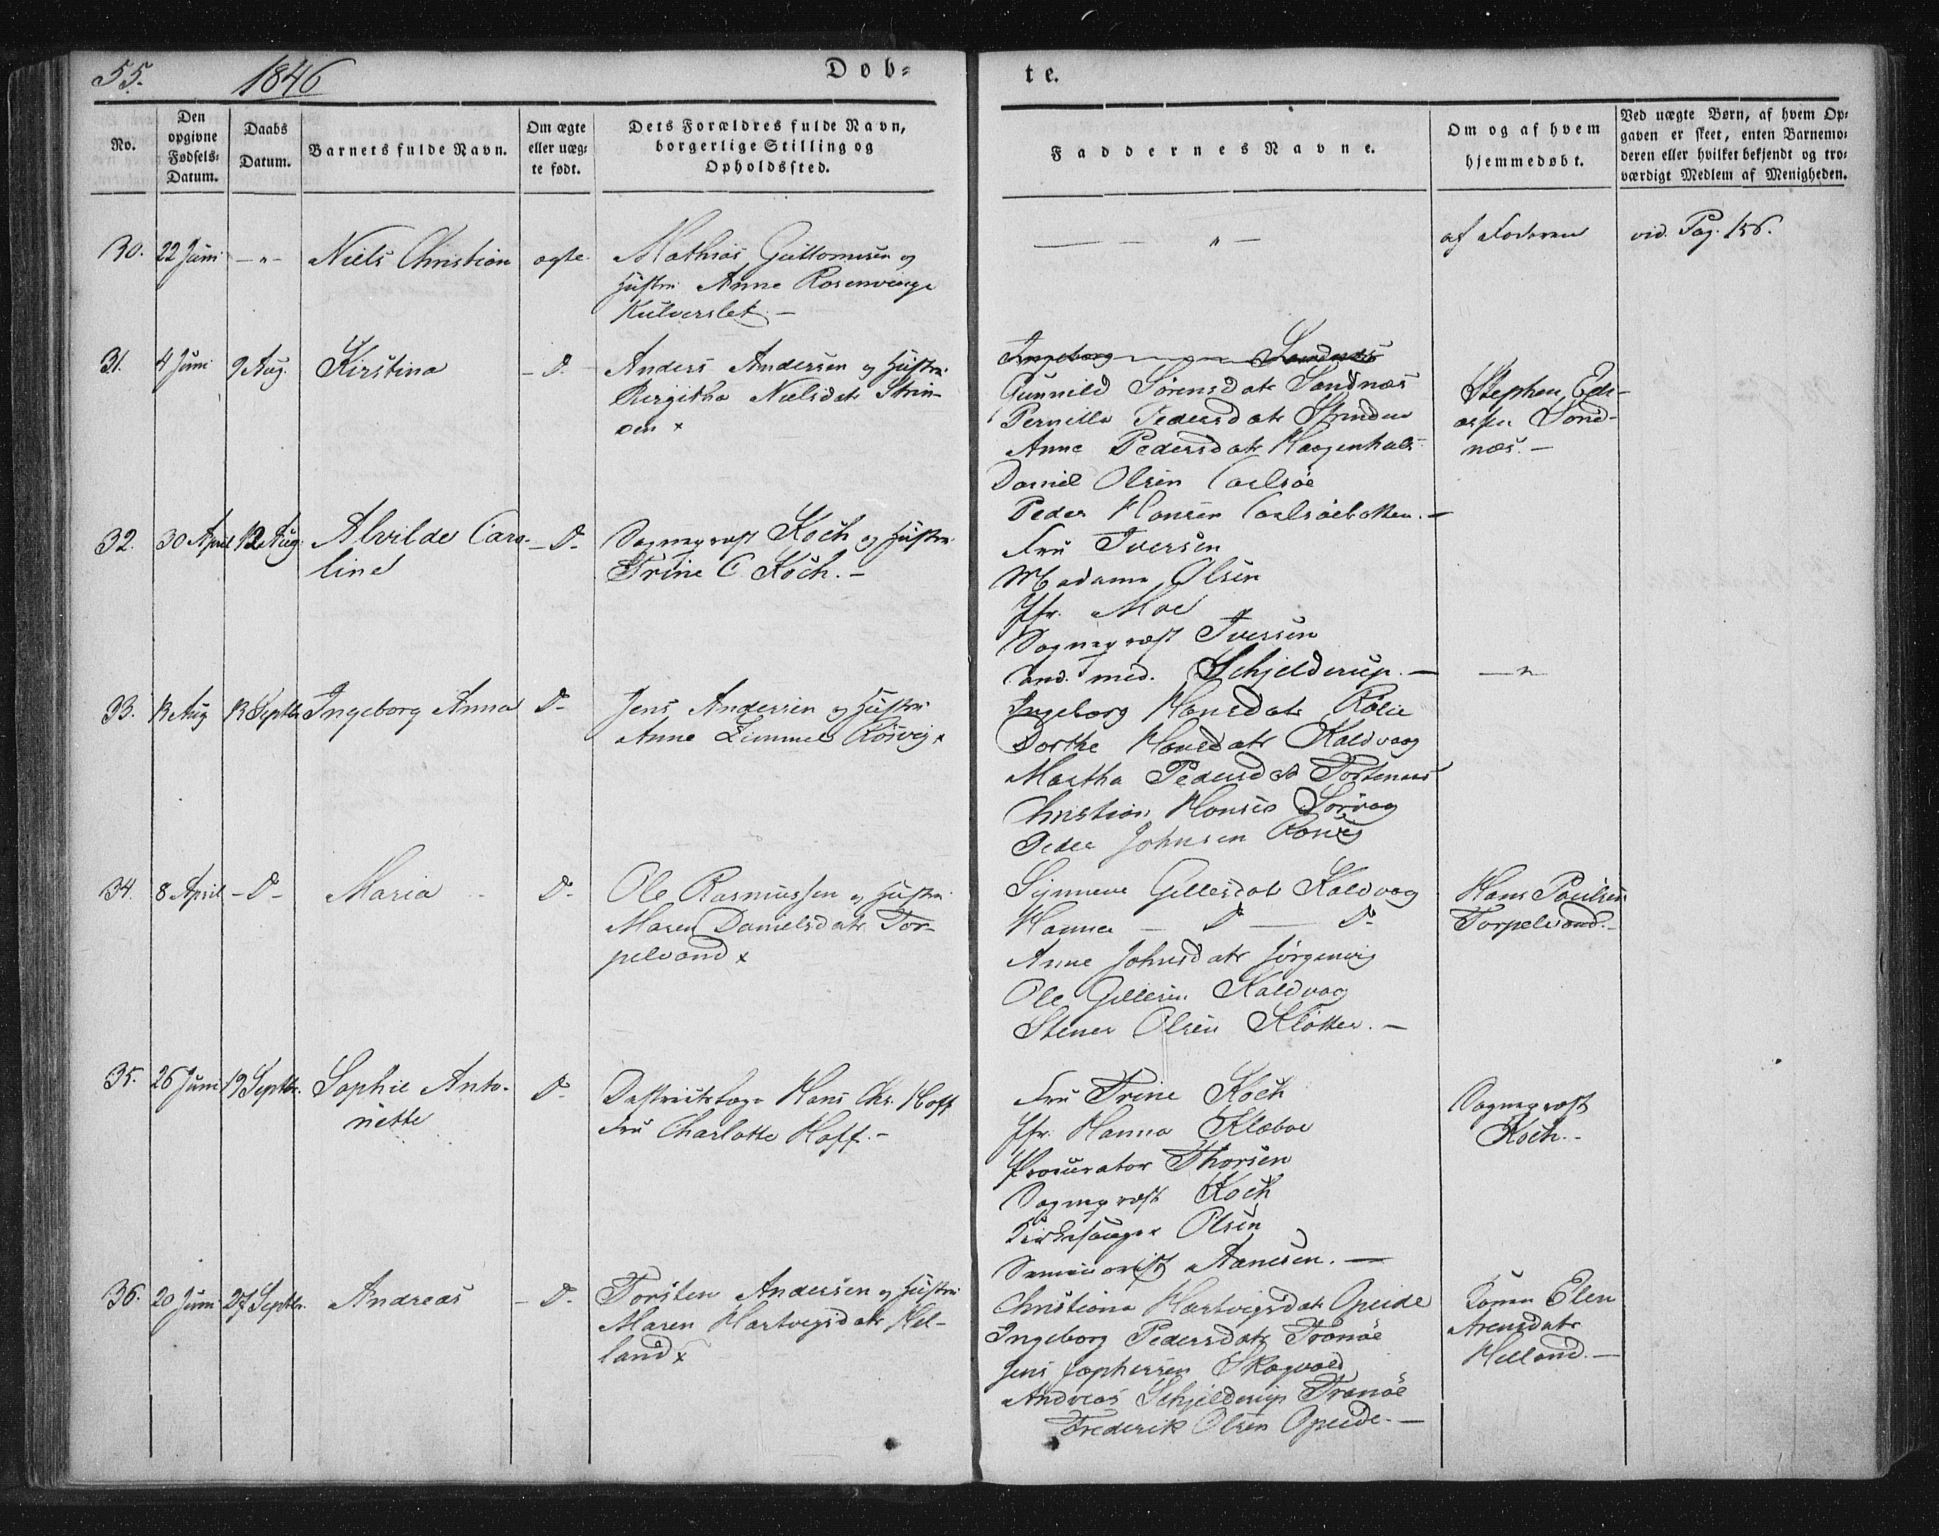 55. 1846 Døb= te.
No.
Den opgivne Fødsels= Datum.
Daabs Datum.
Barnets fulde Navn.
Om ægte eller uæg= te født.
Dets Forældres fulde Navn, borgerlige Stilling og Opholdssted.
Faddernes Navne.
Om og af hvem hjemmedøbt.
Ved uægte Børn, af hvem Op= gaven er skeet, enten Barnemo= deren eller hvilket bekjendt og tro= værdigt Medlem af Menigheden.
30. 22 Juni -"- Niels Christian ægte. Mathias Guttomsen og
Hustru Anne Rosenvinge
Kulverslet. -
- " -
af Faderen
vid. Pag. 156.
31. 4 Juni 9 Aug. Kirstina - D. Anders Andersen og Hustru
Birgitha Nielsdatr Strin-
den x
Ingeborg Sandnæs
Gunnild Sörensdatr Sandnæs
Pernille Pedersdatr Strinden
Anne Pedersdatr Haagenhals
Daniel Olsen Carlsöe
Peder Hansen Carlsöebotten. -
Stephen Ed-
Sand-
næs. -
32. 30 April 12 Aug. Alvilde Caro-
line
- D - Sognepræst Koch og Hustru
Trine C Koch. -
Fru Iversen
Madame Olsen
Jfr. Moe
Sognepræst Iversen
cand. med. Schjelderup. -
- " -
33. 12 Aug 13 Septbr. Ingeborg Anna D - Jens Andersen og Hustru
Anne Zimmer Rösvig x
Ingeborg Hansdatr Rölie
Dorthe Hansdatr Kaldvaag
Martha Pedersdatr Tortenæs
Christian Hansen Sörvag
Peder Johnsen Rösvig
34. 8 April - D - Maria - D - Ole Rasmussen og Hustru
Maren Danielsdatr Tor-
pelvand x
Synneve Gillesdatr Kaldvag
Hanna - D - D
Anne Johnsdatr Jörgenvig
Ole Gillesen Kaldvag
Stener Olsen Kløtten. -
Hans Paulsen
Torpelvand. -
35. 26 Juni 13 Septbr. Sophie Anto-
nette
D - Districtslæge Hans Chr. Hoff
Fru Charlotte Hoff. -
Fru Trine Koch
Jfr. Hanna Klæboe
Procurator Thorsen
Sognepræst Koch
Kirkesanger Olsen
Seminarist Aanesen. -
Sognepræst
Koch. -
36. 20 Juni 27 Septbr. Andreas - D. Torsten Andersen og Hustru
Maren Hartvigsdatr Hel-
land x
Christiana Hartvigsdatr Opeide
Ingeborg Pedersdatr Tranöe
Jens Japhersen Skogvold
Andreas Schjelderup Tranöe
Frederik Olsen Opeide. -
Konen Elen
Arensdatr
Helland. -